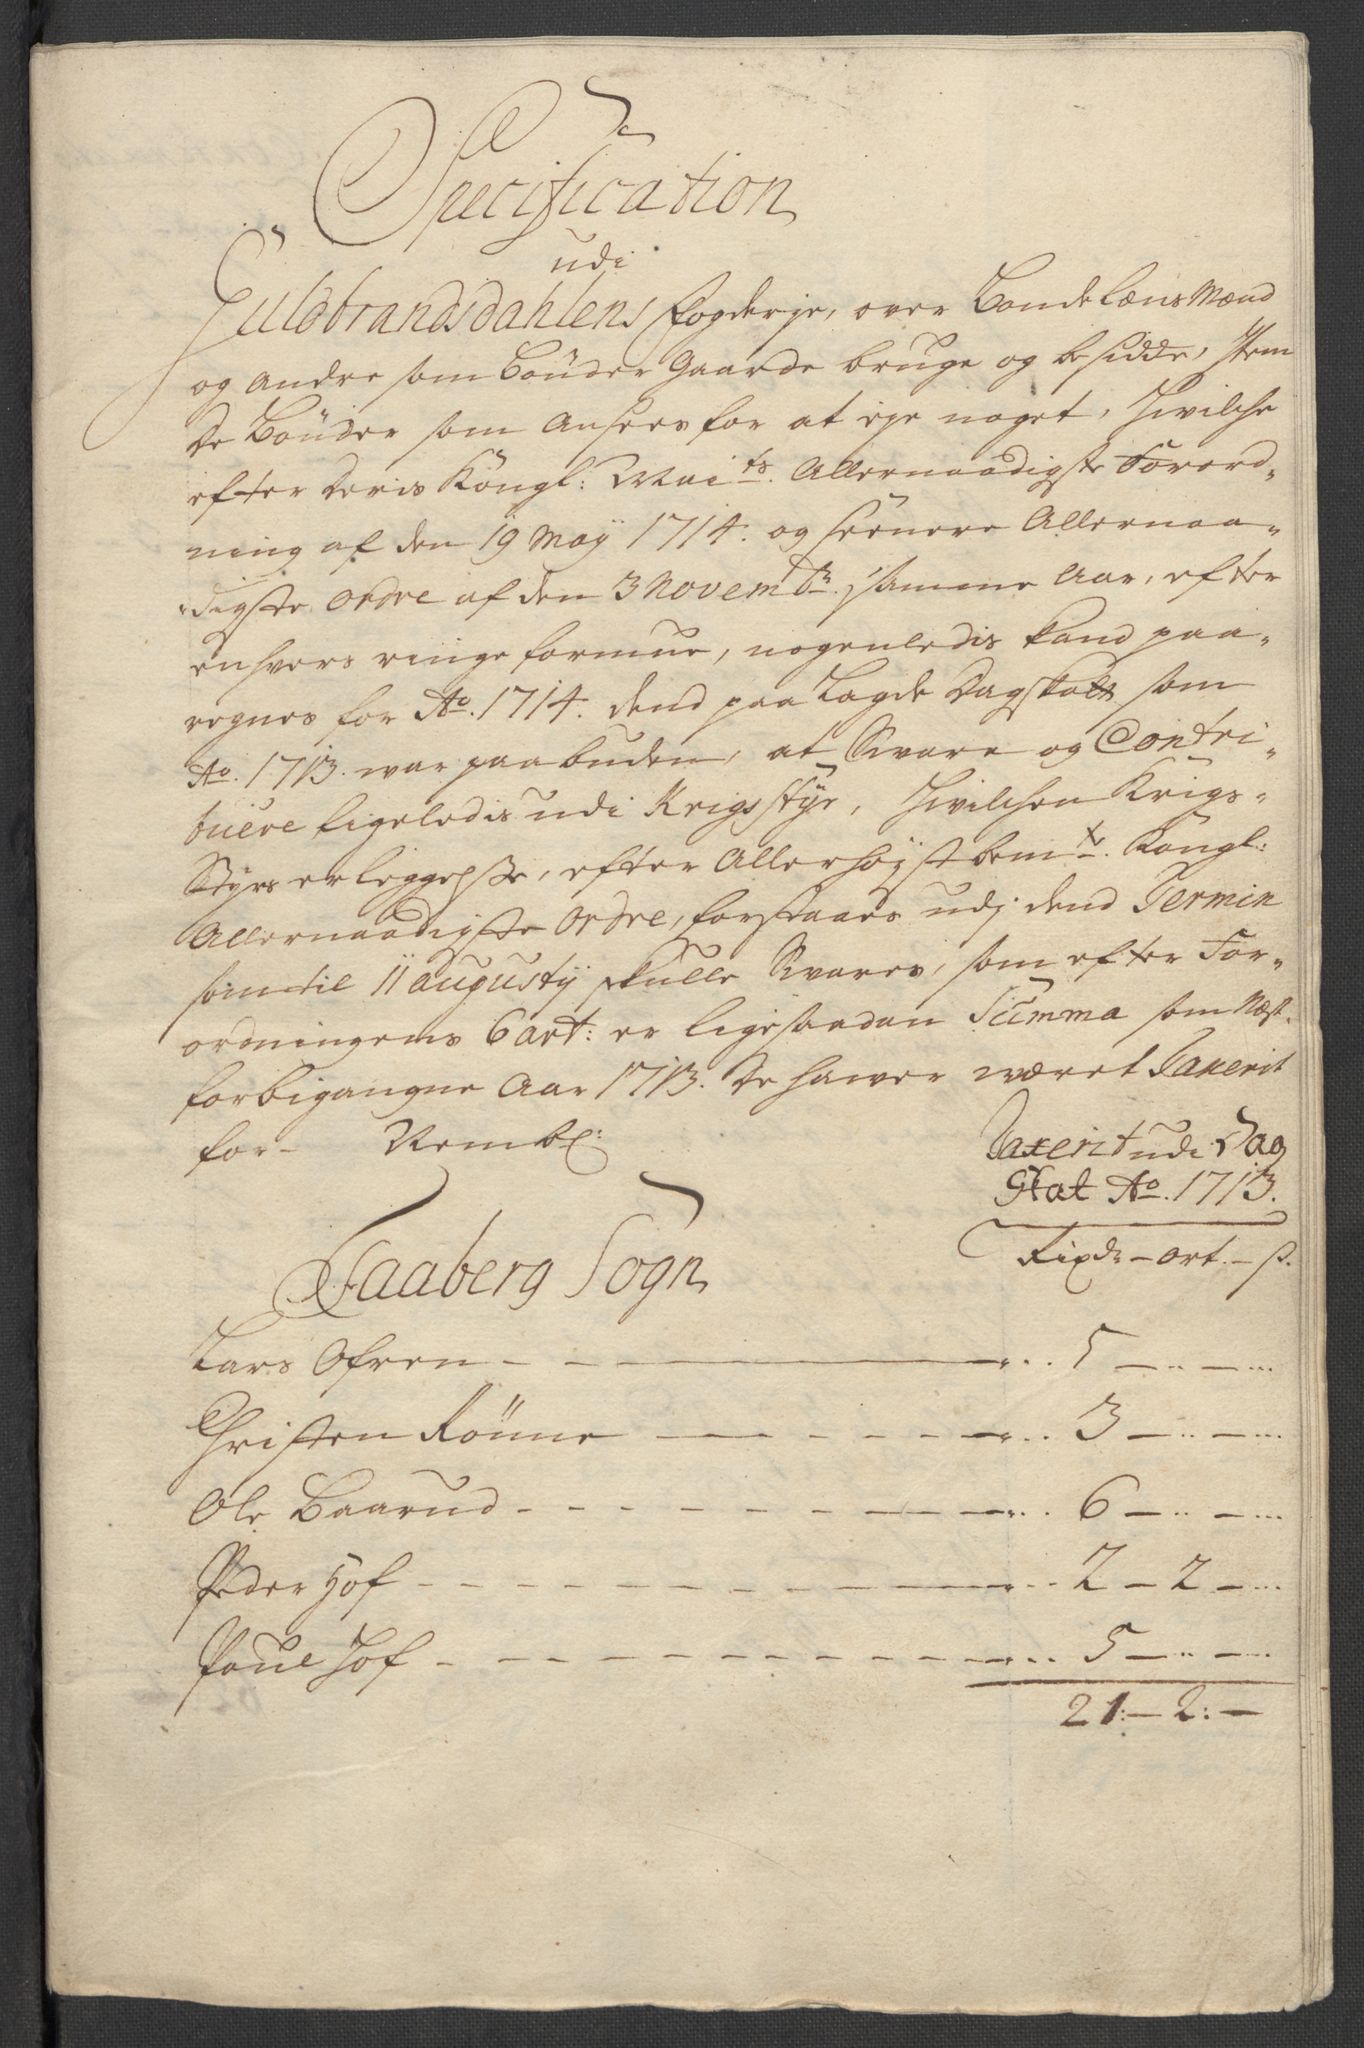 Specification
udi
Guldbrandsdahlens fogderje, over Bonde Lænsmænd
og andre som Bönder Gaarde bruge og besidde, Item
De Bönder som ansees for at eye noget, Hvilche
efter Deris Köngl: Mai ts. Allernaadigste Forord-
ning af den 19 Maÿ 1714. og seenere Allernaa-
digste Ordre af den 3 Novembr. samme Aar, efter
enhvers ringe formue, nogenledis kand paa-
regnes for Ao. 1714. dend paa Lagde Dagskatt som
Ao. 1713. war paabuden, at Svare og Contri-
buere ligeledis udi Krigsstÿr, Hvilchen Krigs-
Styrs erleggelsse, efter Allerhöÿstbem te. Köngl:
Allernaadigste Ordre, forstaaes udj dend Termin
som til 11 augustÿ skulle Svares, som efter For-
ordningens 6 art: er ligesaadan Summa som Næst-
forbigangne Aar 1713. De hawer wæret Taxerit
for- Nembl:
Taxerit udi Dag
Skat Ao. 1713.
Rixdr - ort. - s.
Faaberg Sogn
Lars Ofren - - 5 - .. - ...
Christen Rönne - - - - 3 - .. - ...
Ole Baarud - - - - 6 - .. - ...
Peder Hof - - - - 2 - 2 - ...
Poul Hof - - - - 5 - .. - ...
21:- 2:-